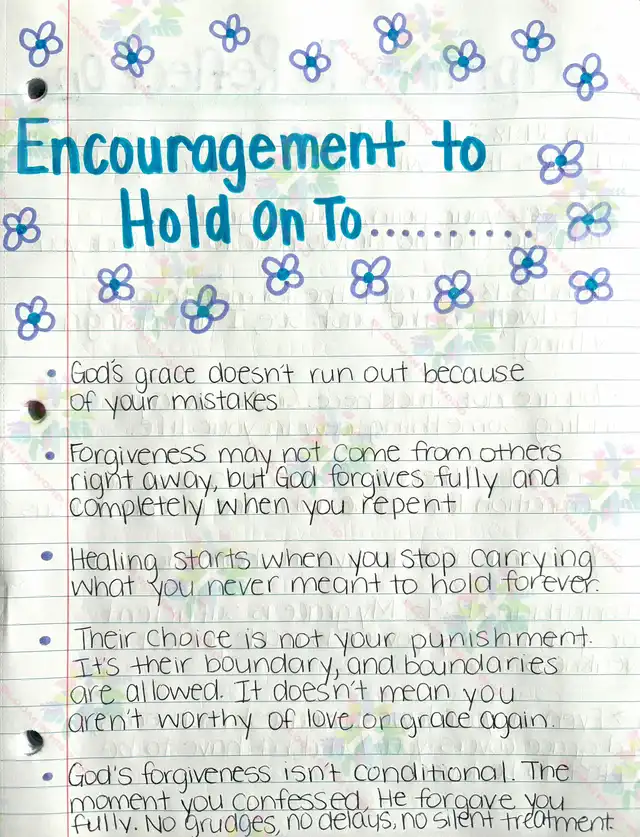 Encouragement to
Hold On To..........
• God's grace doesn't run out because
of your mistakes
• Forgiveness may not come from others
right away, but God forgives fully and
completely when you repent
• Healing starts when you stop carrying
what you never meant to hold forever.
• Their choice is not your punishment.
It's their boundary, and boundaries
are allowed. It doesn't mean you
aren't worthy of love or grace again.
• God's forgiveness isn't conditional. The
moment you confessed, He forgave you
fully. No grudges, no delays, no silent treatment.